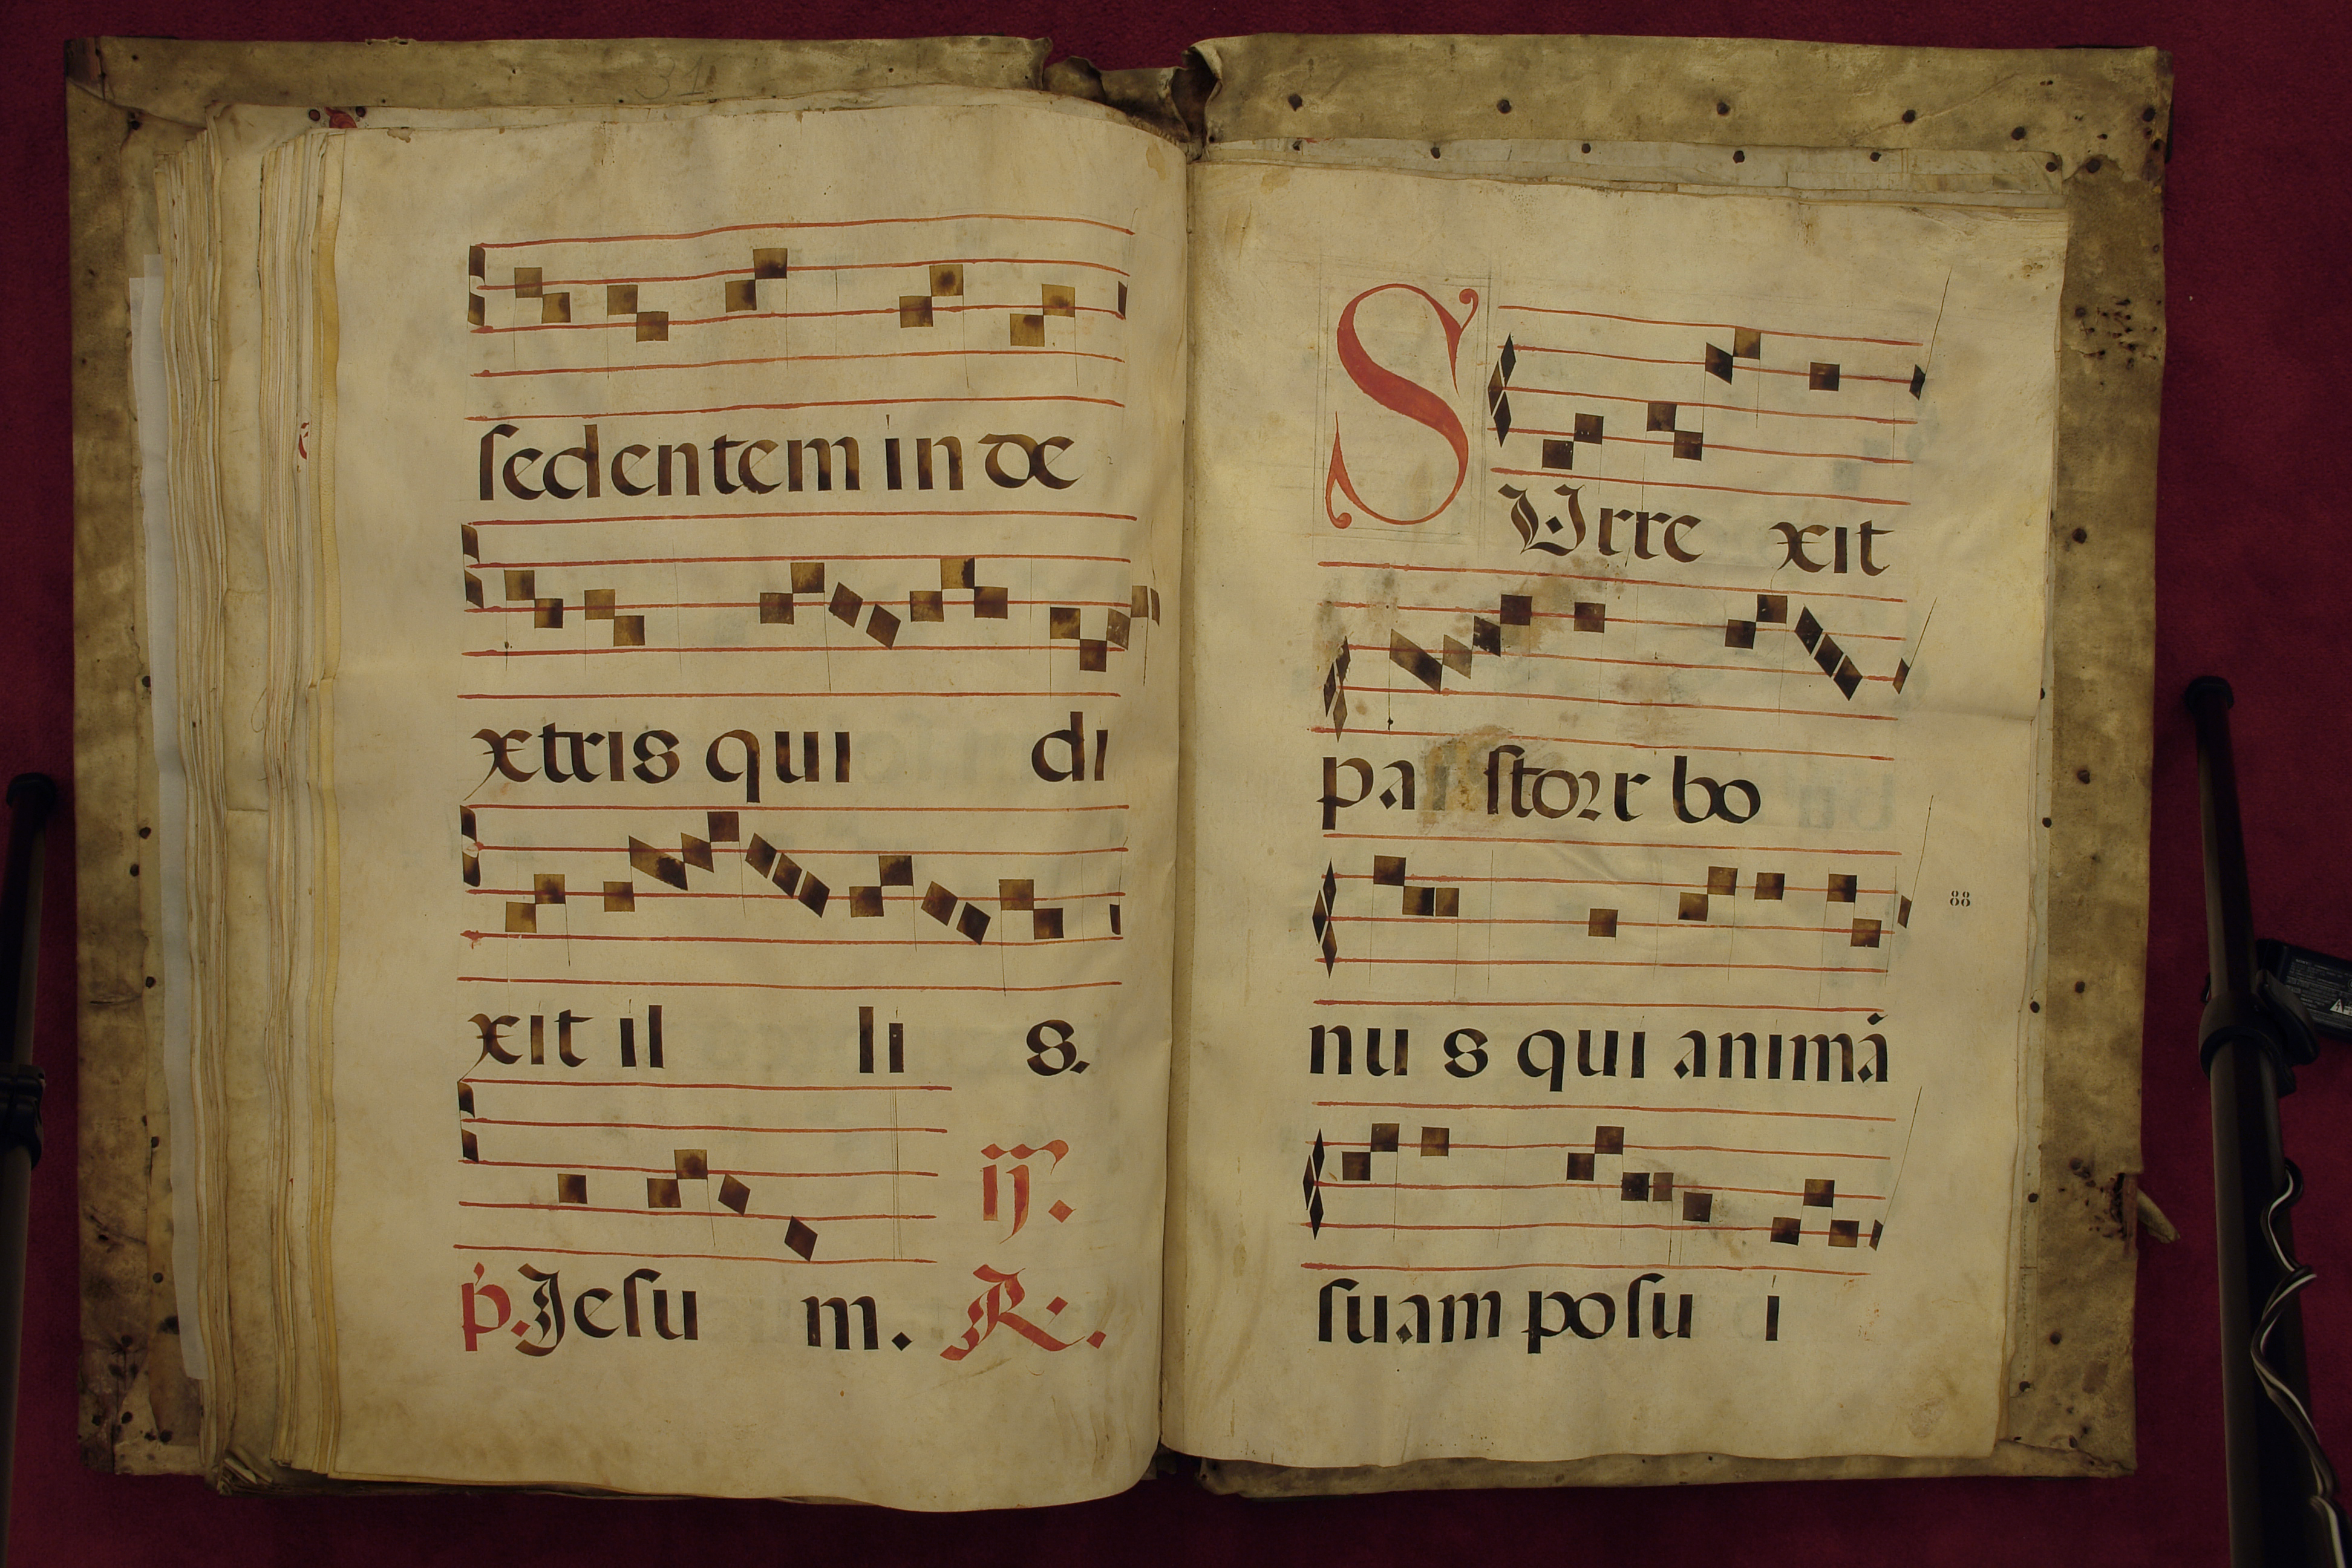 31
sedentem in de
xtris qui di
xit il li s.
ij.
p. Jesu m. R.
SUrre xit
pa storr bo
88
nu s qui animã
suam posu i